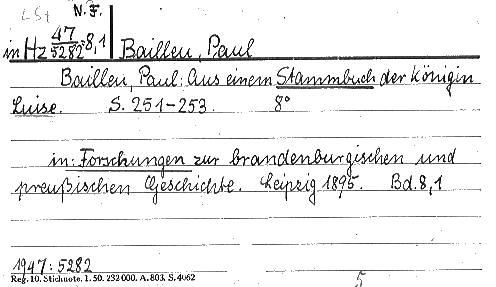 LSt N. F.
in Hz 47/5282-8,1 Bailleu, Paul
Bailleu, Paul: Aus einem Stammbuch der Königin
Luise. S. 251-253. 8°
in: Forschungen zur brandenburgischen und
preußischen Geschichte. Leipzig 1895. Bd. 8,1
1947: 5282
Reg. 10. Stichnote. 1. 50. 232000. A. 803. S. 4062
5